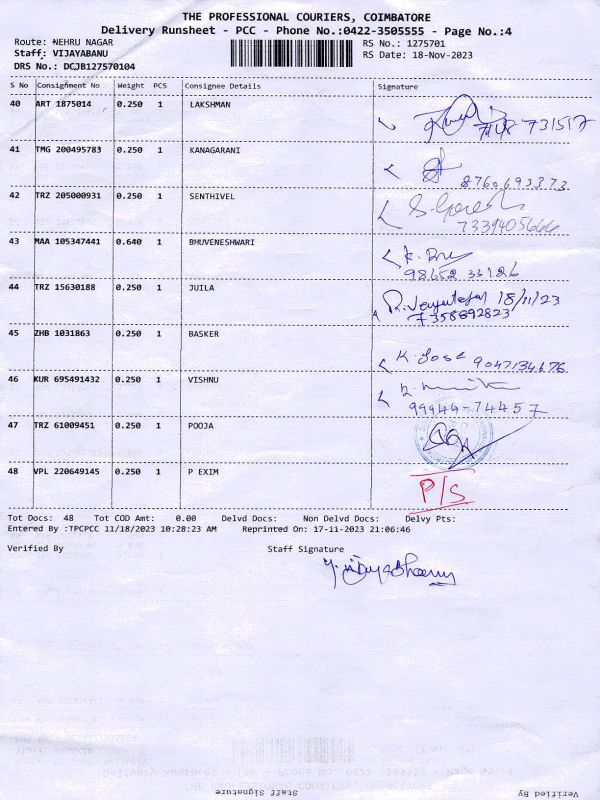 THE PROFESSIONAL COURIERS, COIMBATORE
Delivery Runsheet - PCC - Phone No.:0422-3505555 - Page No.:4
Route: NEHRU NAGAR RS No.: 1275701
Staff: VIJAYABANU RS Date: 18-Nov-2023
DRS No.: DCJB127570104
S No Consignment No Weight PCS Consignee Details Signature
40 ART 1875014 0.250 1 LAKSHMAN
41 TMG 200495783 0.250 1 KANAGARANI
8760693373
42 TRZ 205000931 0.250 1 SENTHIVEL
7339405666
43 MAA 105347441 0.640 1 BHUVENESHWARI
98652 33126
44 TRZ 15630188 0.250 1 JUILA
18/11/23
7358692823
45 ZHB 1031863 0.250 1 BASKER
K. Jose 9047134676
46 KUR 695491432 0.250 1 VISHNU
99944-74457
47 TRZ 61009451 0.250 1 POOJA
48 VPL 220649145 0.250 1 P EXIM
P/S
Tot Docs: 48 Tot COD Amt: 0.00 Delvd Docs: Non Delvd Docs: Delvy Pts:
Entered By :TPCPCC 11/18/2023 10:28:23 AM Reprinted On: 17-11-2023 21:06:46
Verified By Staff Signature